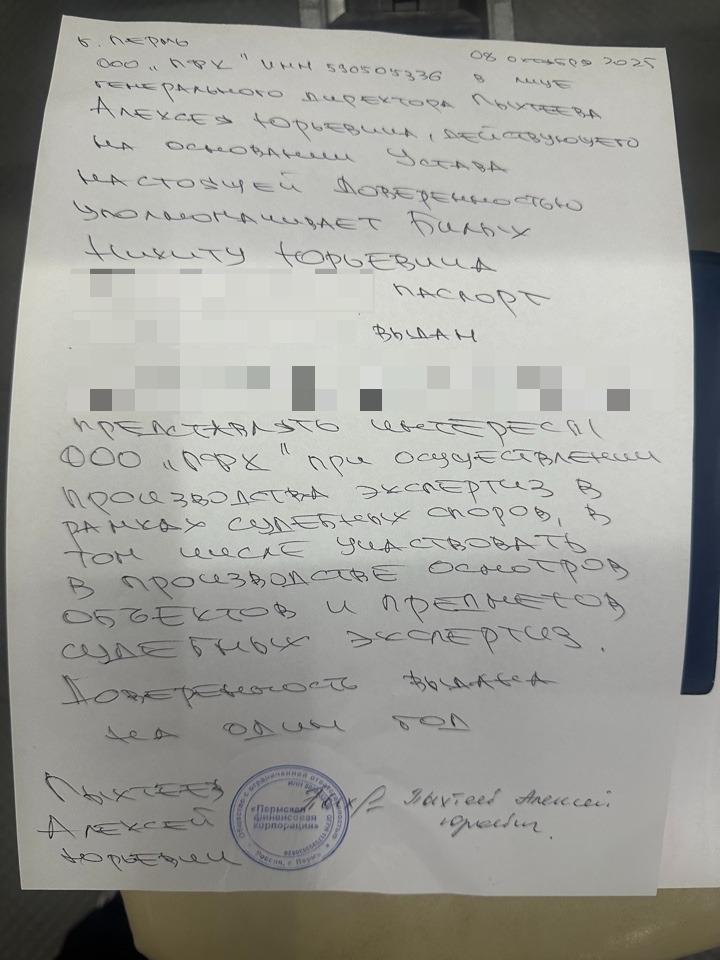 г. Пермь 08 октября 2025
ООО „ПФК" ИНН 590505336 в лице
генерального директора Пыхтеева
Алексея Юрьевича, действующего
на основании Устава
настоящей доверенностью
уполномачивает Билых
Никиту Юрьевича
паспорт
выдан
представлять интересы
ООО „ПФК" при осуществлении
производства экспертиз в
рамках судебных споров, в
том числе участвовать
в производстве осмотров
объектов и предметов
судебных экспертиз.
Доверенность выдана
на один год
Пыхтеев
Алексей
Юрьевич
Общество с ограниченной ответственностью
«Пермская
финансовая
корпорация»
Россия, г. Пермь
Пыхтеев Алексей
Юрьевич.